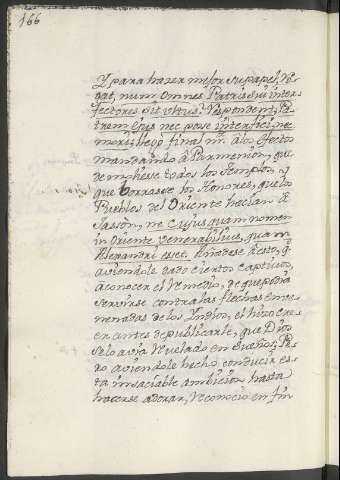 166
Y para hazer mejor su papel, Ro
gat, num omnes Patris sui inter
fectores sit ultus? Respondent, Pa
trem ejus nec posse interfici, nec
mori. Llegó final m.te a los
mandando à Parmenion, que
demoliese todos los Templos, y
que borrase los Honores, que los
Pueblos del Oriente hacían à
Jasòn, ne cujusquam nomen
in Oriente venerabilius, quam
Alexandri esset. Añadese à esto, q.
aviendole dado ciertos captivos,
a conocer el remedio, de que podia
servirse contra las flechas enve
nenadas de los Indios, el hizo cre
er antes de publicarle, que Dios
se lo avia revelado en sueños; Pe
ro aviendole hecho conducir es
ta insaciable ambicion hasta
hacerse adorar, reconocio en fin